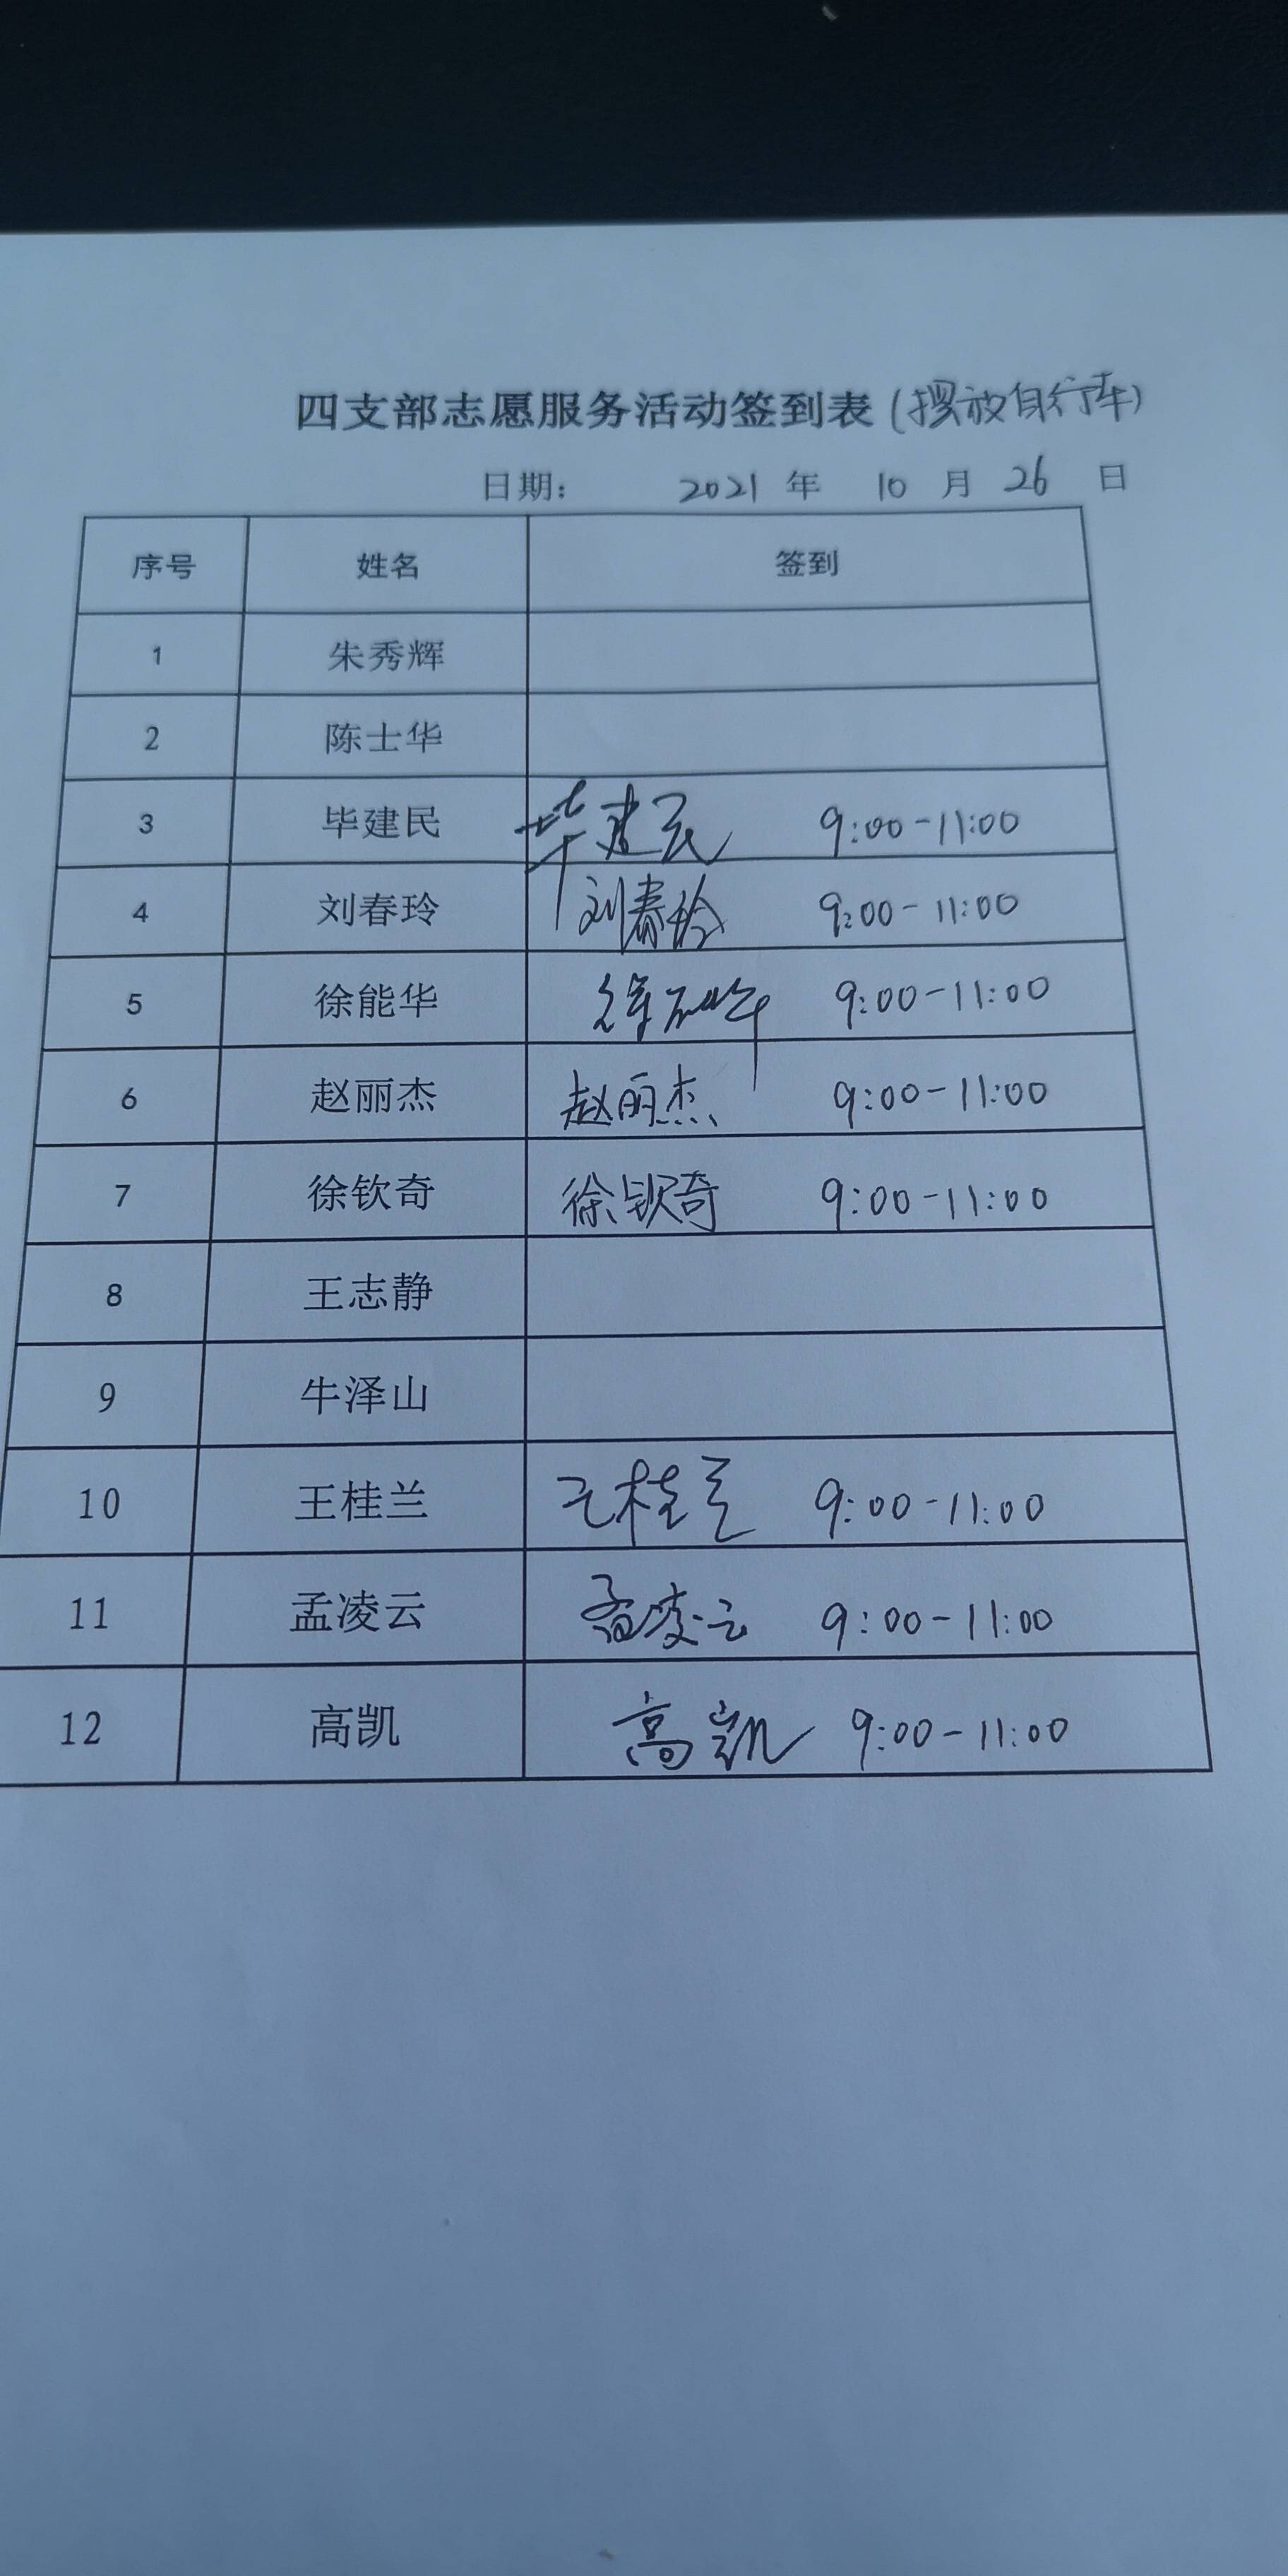 四支部志愿服务活动签到表（摆放自行车）
日期： 2021 年 10 月 26 日
序号 姓名 签到
1 朱秀辉
2 陈士华
3 毕建民 毕建民 9:00-11:00
4 刘春玲 刘春玲 9:00-11:00
5 徐能华 徐能华 9:00-11:00
6 赵丽杰 赵丽杰 9:00-11:00
7 徐钦奇 徐钦奇 9:00-11:00
8 王志静
9 牛泽山
10 王桂兰 王桂兰 9:00-11:00
11 孟凌云 孟凌云 9:00-11:00
12 高凯 高凯 9:00-11:00